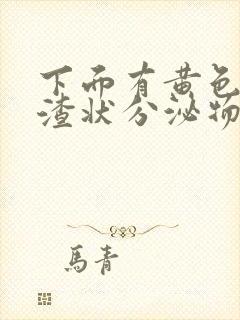 下面有黄色
渣状分泌物
馬青